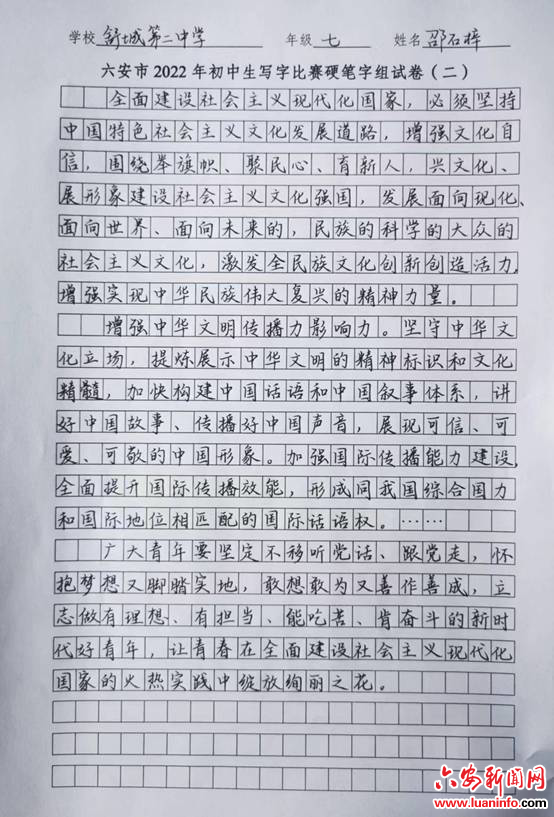 学校 舒城第二中学 年级 七 姓名 邵石梓
六安市 2022 年初中生写字比赛硬笔字组试卷（二）
全面建设社会主义现代化国家，必须坚持
中国特色社会主义文化发展道路，增强文化自
信，围绕举旗帜、聚民心、育新人，兴文化、
展形象建设社会主义文化强国，发展面向现化、
面向世界、面向未来的，民族的科学的大众的
社会主义文化，激发全民族文化创新创造活力，
增强实现中华民族伟大复兴的精神力量。
增强中华文明传播力影响力。坚守中华文
化立场，提炼展示中华文明的精神标识和文化
精髓，加快构建中国话语和中国叙事体系，讲
好中国故事、传播好中国声音，展现可信、可
爱、可敬的中国形象。加强国际传播能力建设，
全面提升国际传播效能，形成同我国综合国力
和国际地位相匹配的国际话语权。……
广大青年要坚定不移听党话、跟党走，怀
抱梦想又脚踏实地，敢想敢为又善作善成，立
志做有理想、有担当、能吃苦、肯奋斗的新时
代好青年，让青春在全面建设社会主义现代化
国家的火热实践中绽放绚丽之花。
六安新闻网
www.luaninfo.com